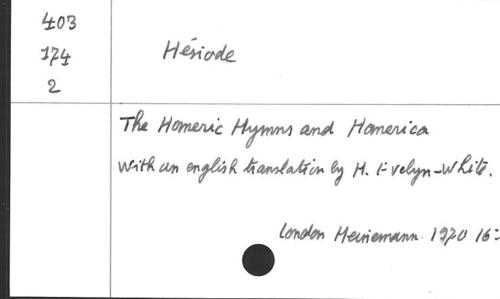 403
174
2
Hésiode
The Homeric Hymns and Homerica
with an english translation by H. Evelyn-White.
London Heinemann 1920 16=